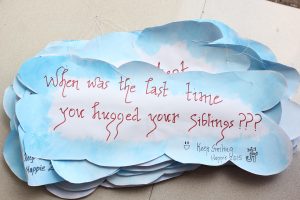 When was the last time
you hugged your siblings???
Keep Smiling
Happie 2015
Keep
Happie